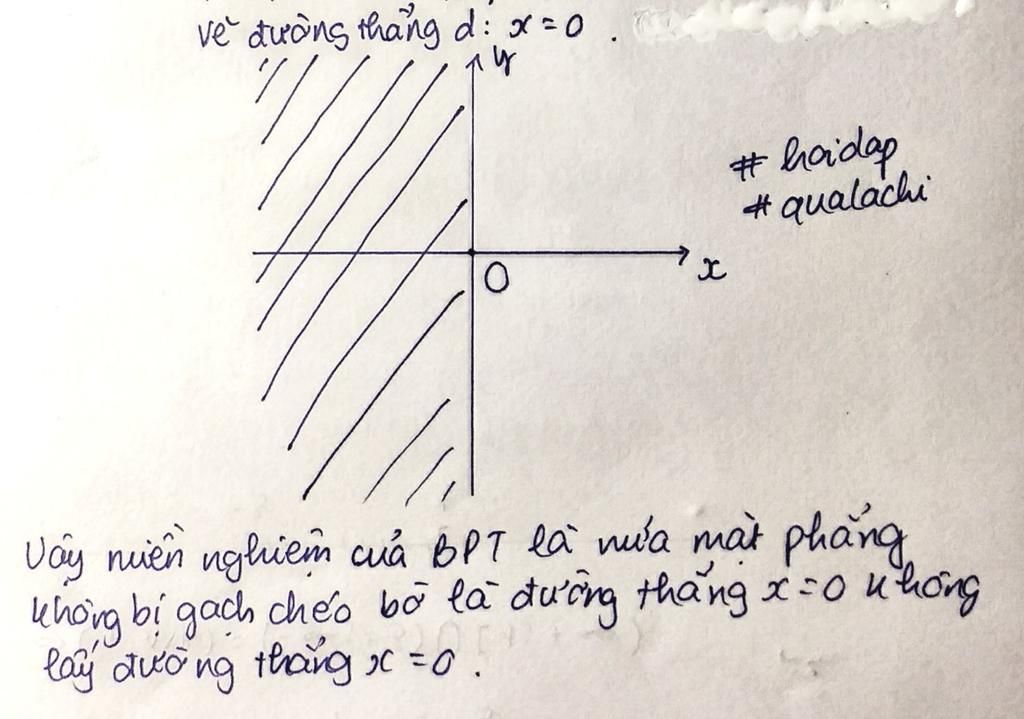 vẽ đường thẳng d: x = 0 .
y
# hoidap
# qualachi
O
x
Vậy miền nghiệm của BPT là nửa mặt phẳng
không bị gạch chéo bờ là đường thẳng x = 0 không
lấy đường thẳng x = 0 .